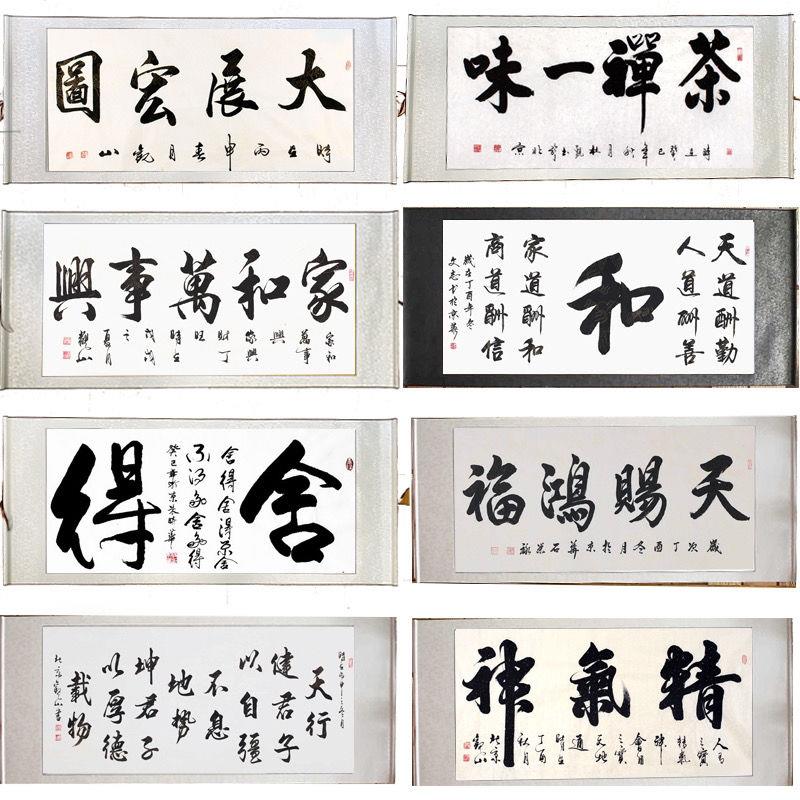 大展宏圖
時在丙申春月觀山
茶禪一味
時在癸巳年秋月
家和萬事興
家和
萬事
興
家興
財丁
旺
時在
戊戌
之
夏月
觀山
天道酬勤
人道酬善
和
家道酬和
商道酬信
歲在丁酉年冬
文志書於京華
舍
舍得舍得不舍
不得多舍多得
癸巳年於京朱時華
得
天賜鴻福
歲次丁酉冬月於京華石榮禄
時在丙申之冬月
天行
健君子
以自彊
不息
地勢
坤君子
以厚德
載物
北京觀山書
精氣神
人有
之寶
精氣
神
之寶
天地
通
時在
丁酉
秋月
北京
觀山